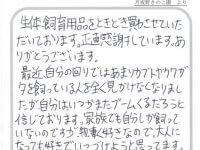 月夜野きのこ園 より
生体・飼育用品をときどき買わさせていた
だいております。正直感謝しています。あり
がとうございます。
最近、自分の回りではあまりカブトやクワガ
タを飼っている人を全く見かけてなくなりまし
たが自分はいつかまたブームくるだろうと
信じております。家族でも自分しか飼って
いないのですが、親事が好きなので、大人に
なっても好きでいつづけようと思ってます。